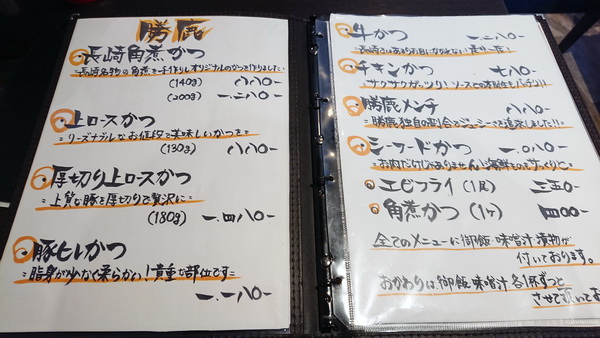 勝鹿
・長崎角煮かつ
=長崎名物の角煮を手作りしオリジナルのかつを作りました=
(140g) 八八〇-
(200g) 一、二八〇-
・上ロースかつ
=リーズナブルなお値段で美味しいかつを=
(130g) 八八〇-
・厚切り上ロースかつ
=上質な豚を厚切りで贅沢に=
(180g) 一、四八〇-
・豚ヒレかつ
=脂身が少なく柔らかい!貴重な部位です=
一、一八〇-
・牛かつ
一、二八〇-
・チキンかつ
七八〇-
サクサクガッツリ!ソースとの相性もバチン!!
・勝鹿メンチ
八八〇-
=勝鹿独自の割合でジューシーさを追求しました!!=
・シーフードかつ
一、〇八〇-
=お肉だけじゃありません!海鮮ものもサックリと=
・エビフライ(1尾) 三五〇-
・角煮かつ(1ヶ) 四〇〇-
全てのメニューに御飯味噌汁漬物が
付いております。
おかわりは、御飯味噌汁各1杯ずつと
させて頂いてお